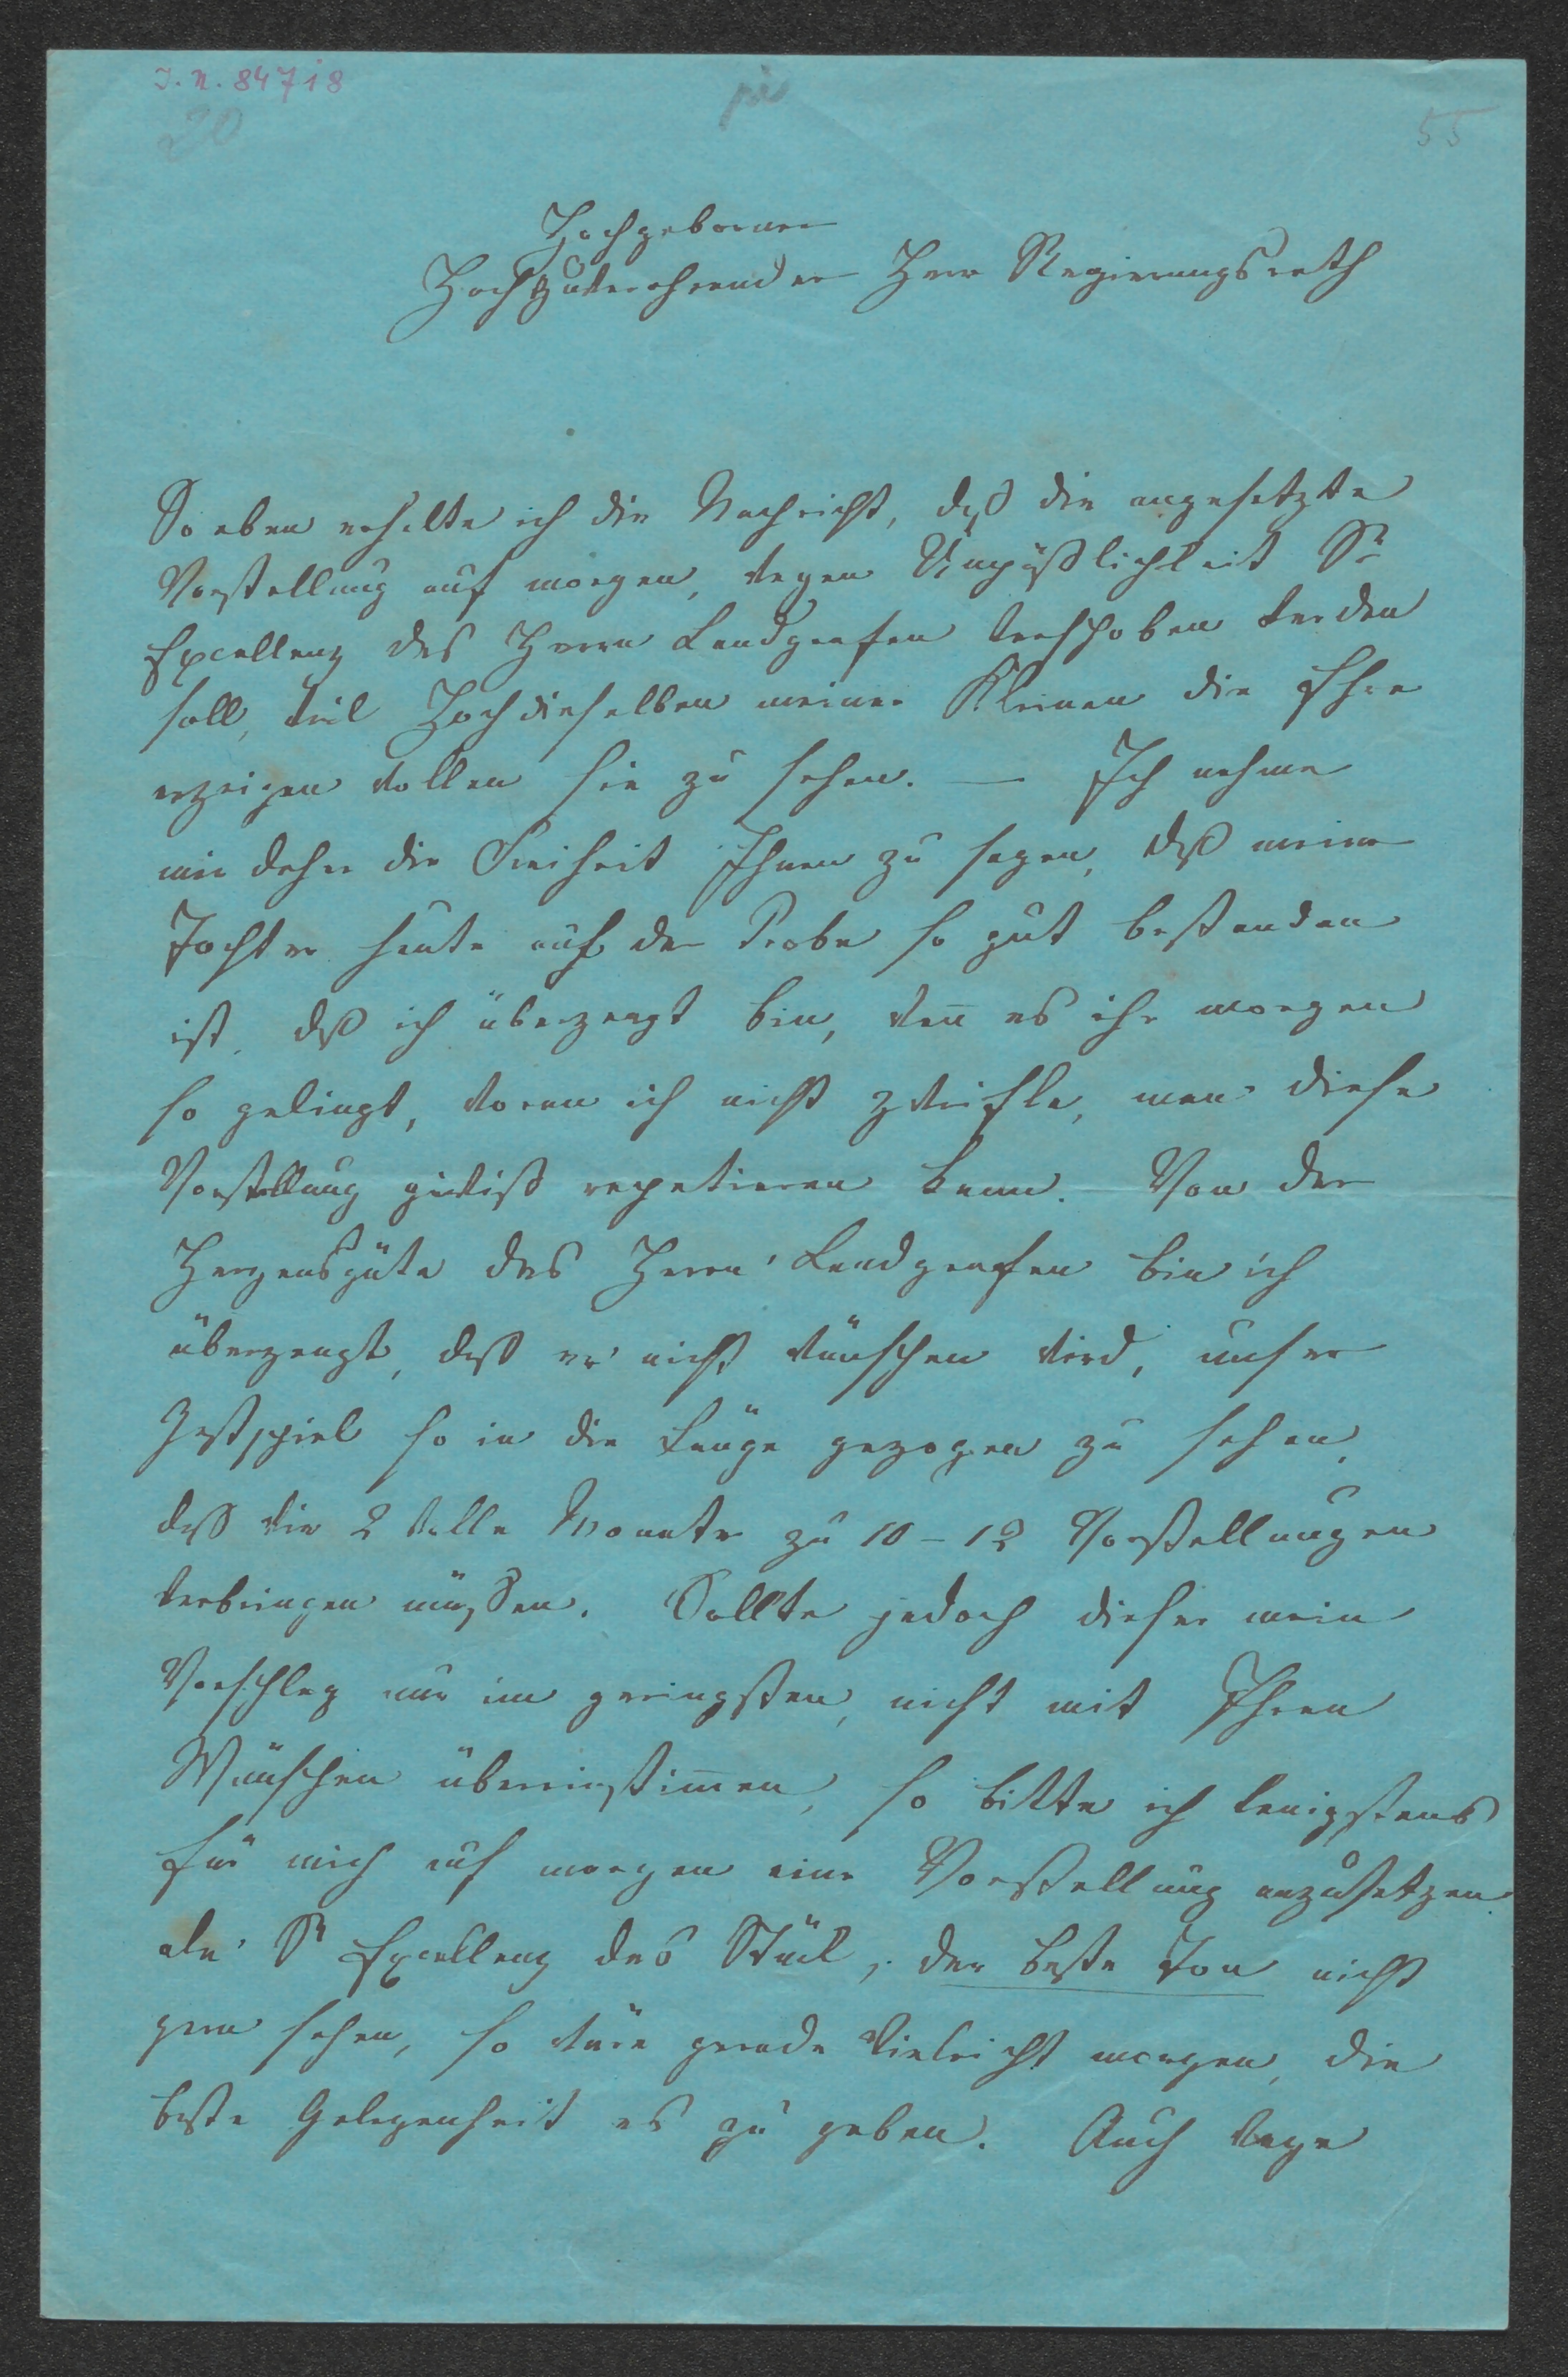 I. N. 84718
20
55
Hochgeborner
Hochzuverehrender Herr Regierungsrath
So eben erhalte ich die Nachricht, daß die angesetzte
Vorstellung auf morgen, wegen Unpäßlichkeit Sr
Excellenz des Herrn Landgrafen verschoben werden
soll, weil Hochdieselben meiner Kleinen die Ehre
erzeigen wollen sie zu sehen. — Ich nehme
mir daher die Freiheit Ihnen zu sagen, daß meine
Tochter heute auf der Probe so gut bestanden
ist, daß ich überzeugt bin, wen̅ es ihr morgen
so gelingt, woran ich nicht zweifle, man diese
Vorstellung gewiß repetieren kann. Von der
Herzensgüte des Herrn Landgrafen bin ich
überzeugt, daß er nicht wünschen wird, unser
Gastspiel so in die Länge gezogen zu sehen,
daß wir 2 volle Monate zu 10 – 12 Vorstellungen
verbringen müssen. Sollte jedoch dieser mein
Vorschlag nur im geringsten, nicht mit Ihren
Wünschen übereinstim̅en, so bitte ich wenigstens
für mich auf morgen eine Vorstellung anzusetzen.
da Sr Excellenz das Stück, der beste Ton nicht
gern sehen, so wäre gerade vieleicht morgen, die
beste Gelegenheit es zu geben. Auch wage